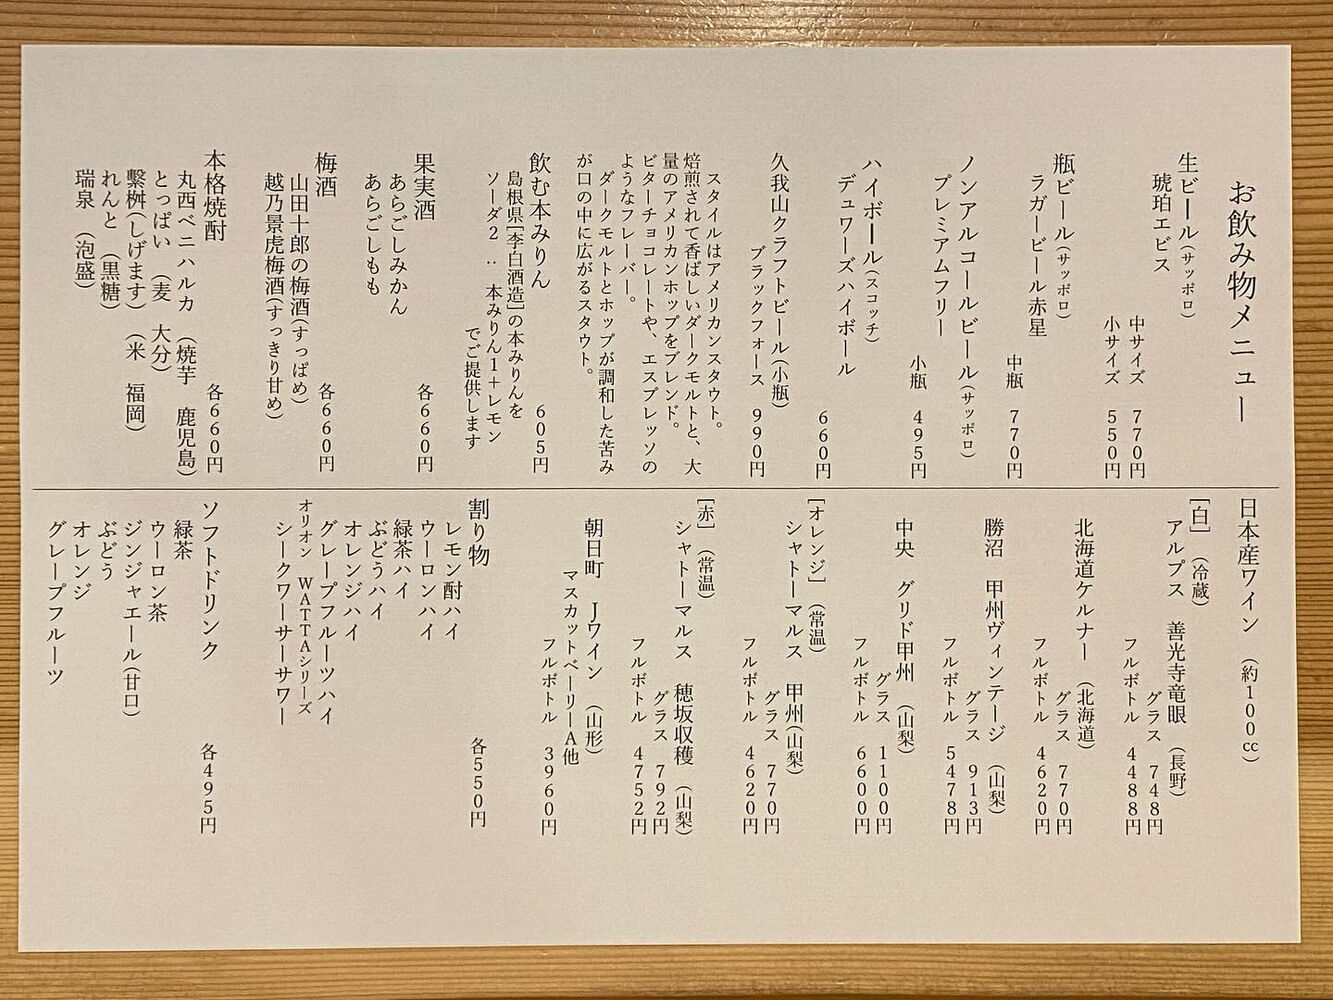 お飲み物メニュー
生ビール(サッポロ)
琥珀エビス
中サイズ 770円
小サイズ 550円
瓶ビール(サッポロ)
ラガービール赤星
中瓶 770円
ノンアルコールビール(サッポロ)
プレミアムフリー
小瓶 495円
ハイボール(スコッチ)
デュワーズハイボール
660円
久我山クラフトビール(小瓶)
ブラックフォース 990円
スタイルはアメリカンスタウト。
焙煎されて香ばしいダークモルトと、大
量のアメリカンホップをブレンド。
ビターチョコレートや、エスプレッソの
ようなフレーバー。
ダークモルトとホップが調和した苦み
が口の中に広がるスタウト。
飲む本みりん 605円
島根県[李白酒造]の本みりんを
ソーダ2:本みりん1+レモン
でご提供します
果実酒 各660円
あらごしみかん
あらごしもも
梅酒 各660円
山田十郎の梅酒(すっぱめ)
越乃景虎梅酒(すっきり甘め)
本格焼酎 各660円
丸西ベニハルカ (焼芋 鹿児島)
とっぱい (麦 大分)
繋桝(しげます) (米 福岡)
れんと (黒糖)
瑞泉 (泡盛)
日本産ワイン (約100cc)
[白] (冷蔵)
アルプス 善光寺竜眼 (長野)
グラス 748円
フルボトル 4488円
北海道ケルナー (北海道)
グラス 770円
フルボトル 4620円
勝沼 甲州ヴィンテージ (山梨)
グラス 913円
フルボトル 5478円
中央 グリド甲州 (山梨)
グラス 1100円
フルボトル 6600円
[オレンジ] (常温)
シャトーマルス 甲州(山梨)
グラス 770円
フルボトル 4620円
[赤] (常温)
シャトーマルス 穂坂収穫 (山梨)
グラス 792円
フルボトル 4752円
朝日町 Jワイン (山形)
マスカットベーリーA他
フルボトル 3960円
割り物 各550円
レモン酎ハイ
ウーロンハイ
緑茶ハイ
ぶどうハイ
オレンジハイ
グレープフルーツハイ
オリオン WATTAシリーズ
シークワーサーサワー
ソフトドリンク 各495円
緑茶
ウーロン茶
ジンジャエール(甘口)
ぶどう
オレンジ
グレープフルーツ